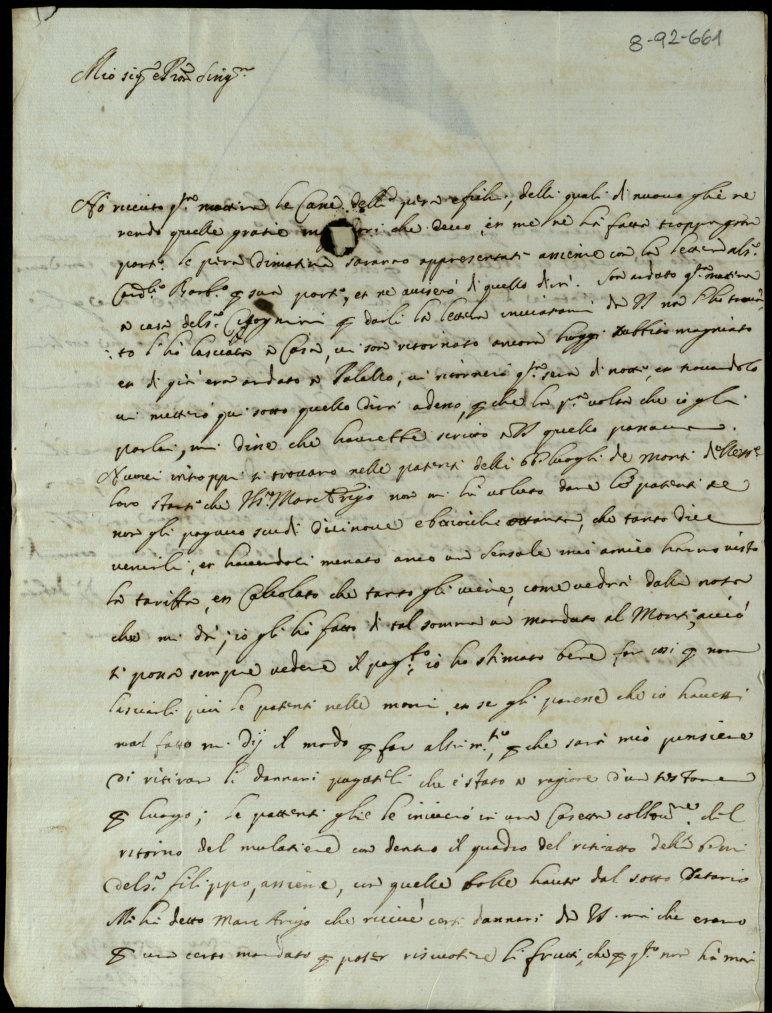 8-92-661
Mio sig.re e Pron Sing.re
Hò riceuto q.sta mattina le Casse delle pera e fichi, delli quali di nuovo gliè ne
rendo quelle gratie che devo, et me ne hà fatto troppa gran
parte le pera dimatina saranno appresentati assieme con la lettera al s.r
Card.le Barb.o p sua parte, et ne aviserò di quello dirà. Son andato q.sta mattina
a casa del s.r p darli la lettera inviatami da VS non l'ho trova
to l'hò lasciata a Casa, vi son ritornato ancora hoggi subbito magniato
et di già era andato a Palazzo, vi ritornerò q.sta sera di notte, et trovandolo
vi metterò qui sotto quello dirà adesso, p che la p.a volta che io gli
parlai, mi disse che haverebbe scritto a VS quello
Nuovi intoppi si trovano nelle patenti delli luoghi de monti
loro che Marc Arrigo non mi hà voluto dare le patenti se
non gli pagavo scudi dicinove e baiocchi ottanta, che tanto dice
venirli, et havendoci menato anco un sensale mio amico hanno visto
la tariffa, et Calcolato che tanto gli viene, come vedrà dalla nota
che mi dà; io gli hò fatto di tal somma un mandato al Monte, acciò
si possa sempre vedere il pag.to; io ho stimato bene far cosi p non
lasciarli più le patenti nelle mani, et se gli paresse che io havessi
mal fatto mi dij il modo p far altrim.te, p che sarà mio pensiere
di ritirar li dannari pagatili che è stato a ragione d'un testone
p luogo; le pattenti gliè le invierò in una Casetta del
ritorno del mulatiere con dentro il quadro del ritratto della
del s.r filippo, assieme, con quelle bolle haute dal sotto Datario
Mi hà detto Marc Arrigo che ricevè certi dannari da VS mà che erano
p un certo mandato p poter riscuotere li frutti, che p q.sto non hà mai